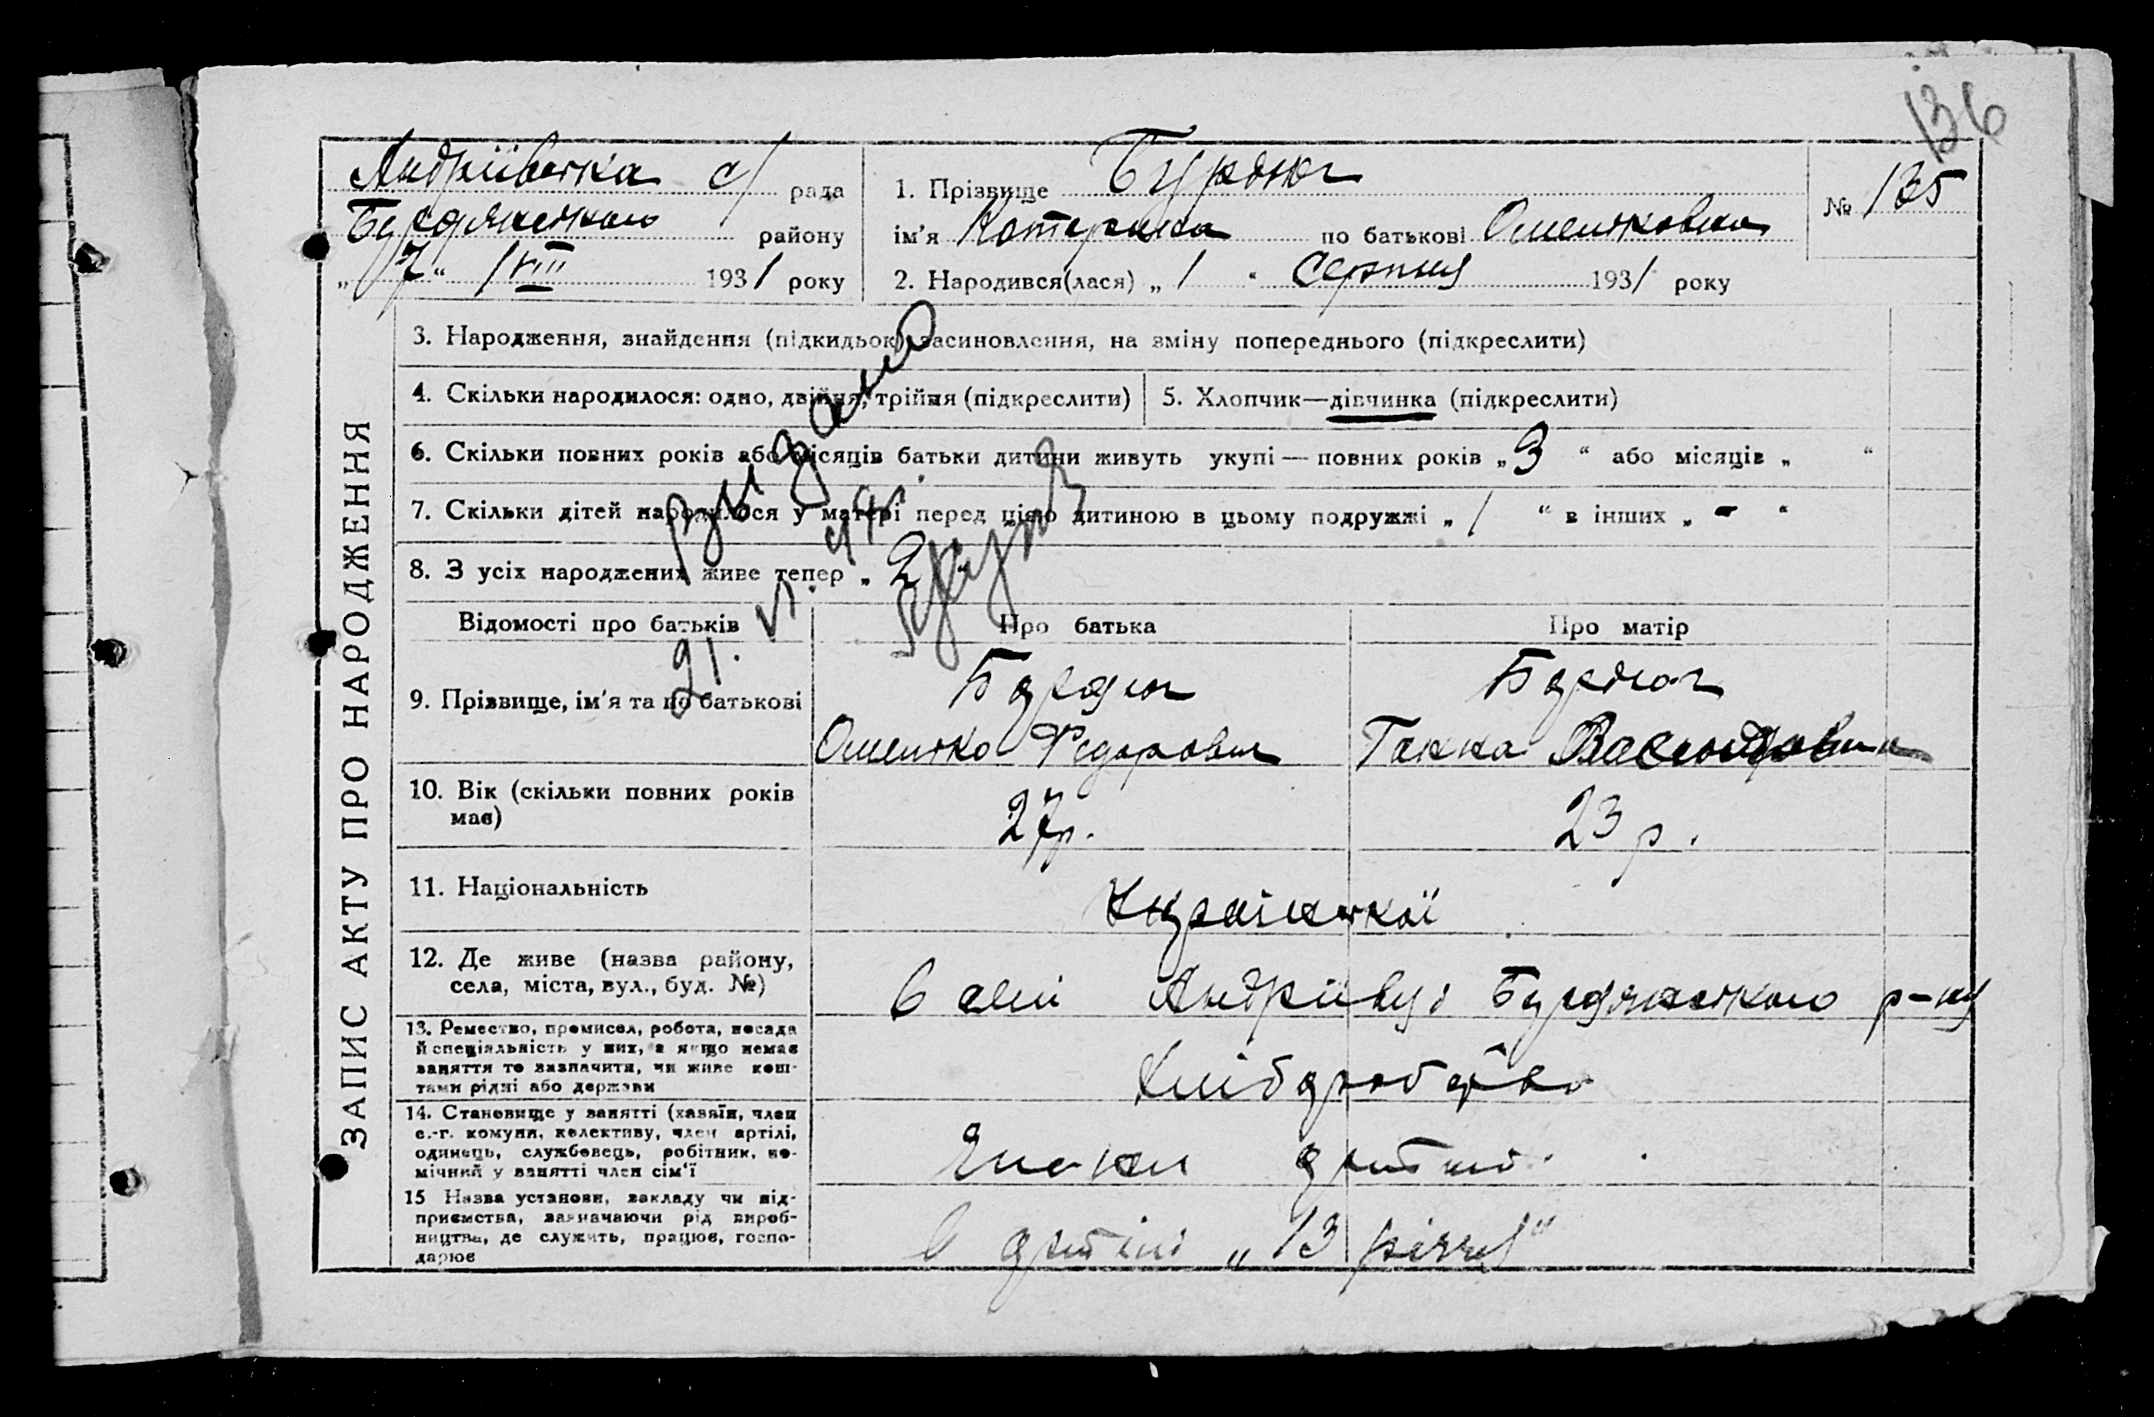 136
Андріївська с/рада
Бердянського району
„7“ VIII 1931 року
1. Прізвище Бурдюг
ім'я Катерина по батькові Омельковна
№ 135
2. Народився(лася) „1“ Серпня 1931 року
ЗАПИС АКТУ ПРО НАРОДЖЕННЯ
3. Народження, знайдення (підкидьок), засиновлення, на зміну попереднього (підкреслити)
4. Скільки народилося: одно, двійня, трійня (підкреслити)
5. Хлопчик—дівчинка (підкреслити)
6. Скільки повних років або місяців батьки дитини живуть укупі — повних років „3“ або місяців „ “
7. Скільки дітей народилося у матері перед цією дитиною в цьому подружжі „1“ в інших „-“
8. З усіх народжених живе тепер „2“
Видано
21. VI.
Відомості про батьків
Про батька
Про матір
9. Прізвище, ім'я та по батькові
Бурдюг
Омелько Федорович
Бурдюг
Ганна
10. Вік (скільки повних років
має)
27р.
23 р.
11. Національність
Української
12. Де живе (назва району,
села, міста, вул., буд. №)
в селі Андріївці Бердянського р-ну
13. Ремество, промисел, робота, посада
й спеціяльність у них, а якщо немає
заняття то зазначити, чи живе кош-
тами рідні або держави
Хліборобство
14. Становище у занятті (хазяїн, член
с.-г. комуни, колективу, член артілі,
одинець, службовець, робітник, по-
мічний у занятті член сім'ї
Члени артілі
15 Назва установи, закладу чи під-
приємства, зазначаючи рід вироб-
ництва, де служить, працює, госпо-
дарює
в артілі „13 річчя“